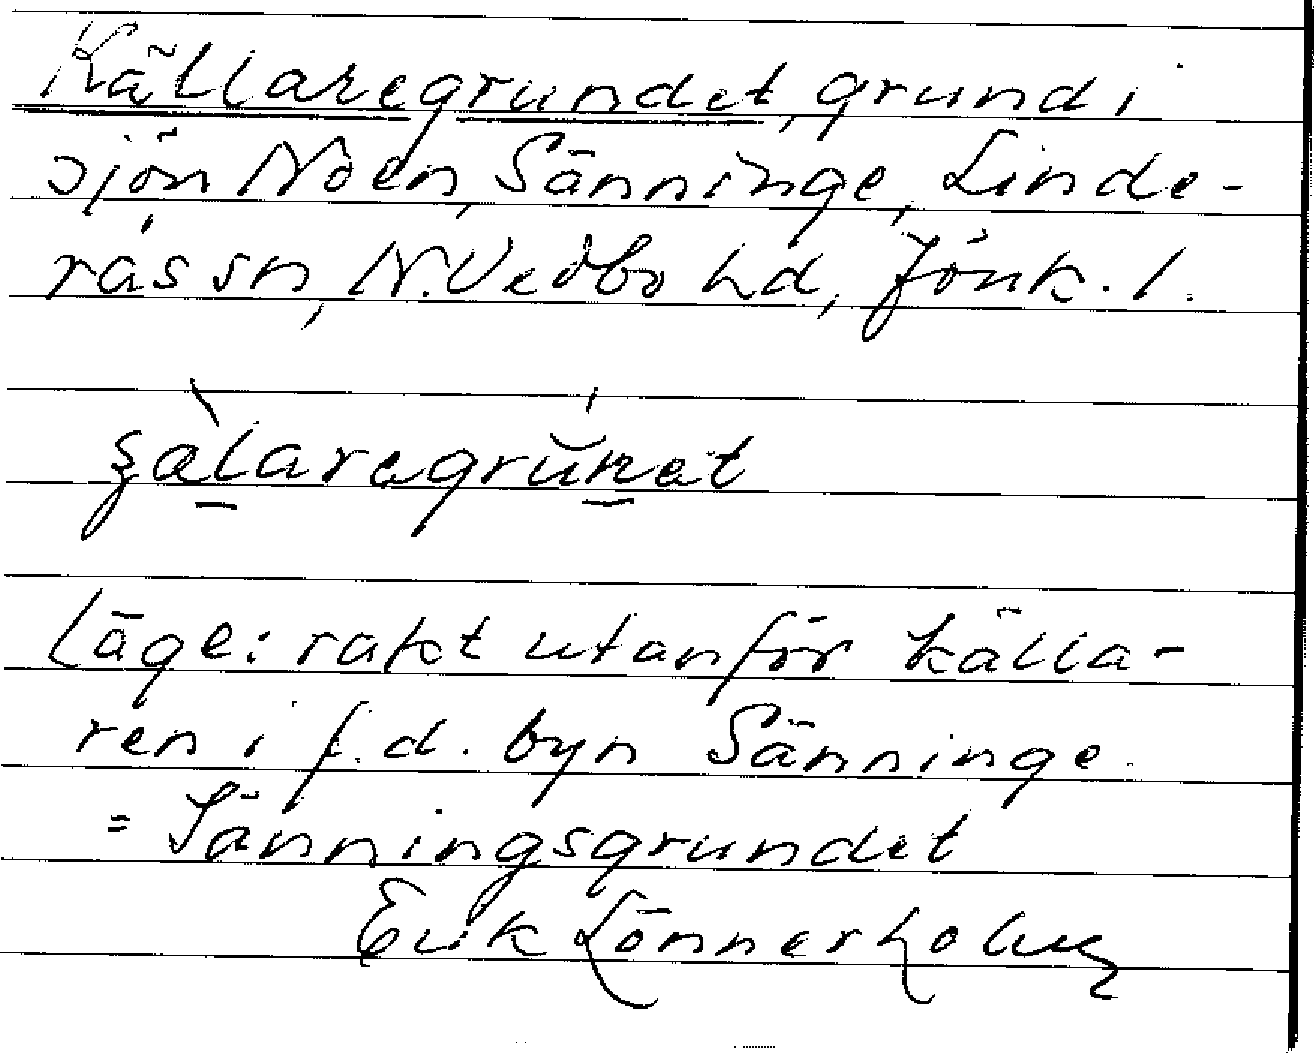 Källaregrundet, grund i
sjön Noen, Sänninge, Linde-
rås sn, N. Vedbo hd, Jönk. l.
Läge: rakt utanför källa-
ren i f.d. byn Sänninge.
= Sänningsgrundet
Erik Lönnerholm